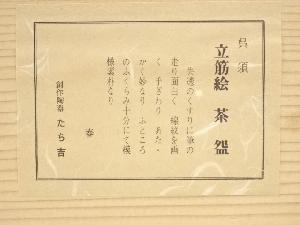 呉須
立筋絵 茶盌
失透のくすりに筆の
走り面白く 線紋を画
く 手ざわり あた
かく妙なり ふところ
のふくらみ十分にて模
様素朴なり
創作陶泰 たち吉